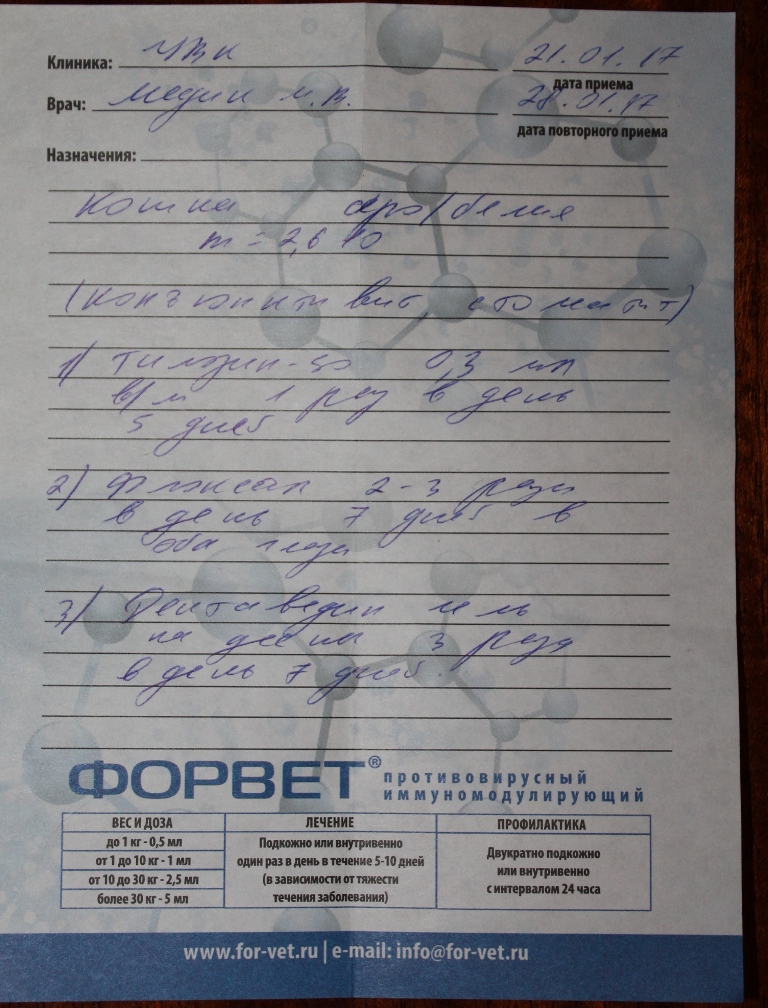 Клиника: УВК 21.01.17
дата приема
Врач: Медин М.В. 28.01.17
дата повторного приема
Назначения:
Кошка серо/белая
m = 2,6 кг
(конъюнктивит, стоматит)
1) Тилозин-50 0,3 мл
в/м 1 раз в день
5 дней
2) Флоксал 2-3 раза
в день 7 дней в
оба глаза
3) Дентаведин гель
на десны 3 раза
в день 7 дней.
ФОРВЕТ®
противовирусный
иммуномодулирующий
ВЕС И ДОЗА
до 1 кг - 0,5 мл
от 1 до 10 кг - 1 мл
от 10 до 30 кг - 2,5 мл
более 30 кг - 5 мл
ЛЕЧЕНИЕ
Подкожно или внутривенно
один раз в день в течение 5-10 дней
(в зависимости от тяжести
течения заболевания)
ПРОФИЛАКТИКА
Двукратно подкожно
или внутривенно
с интервалом 24 часа
www.for-vet.ru | e-mail: info@for-vet.ru